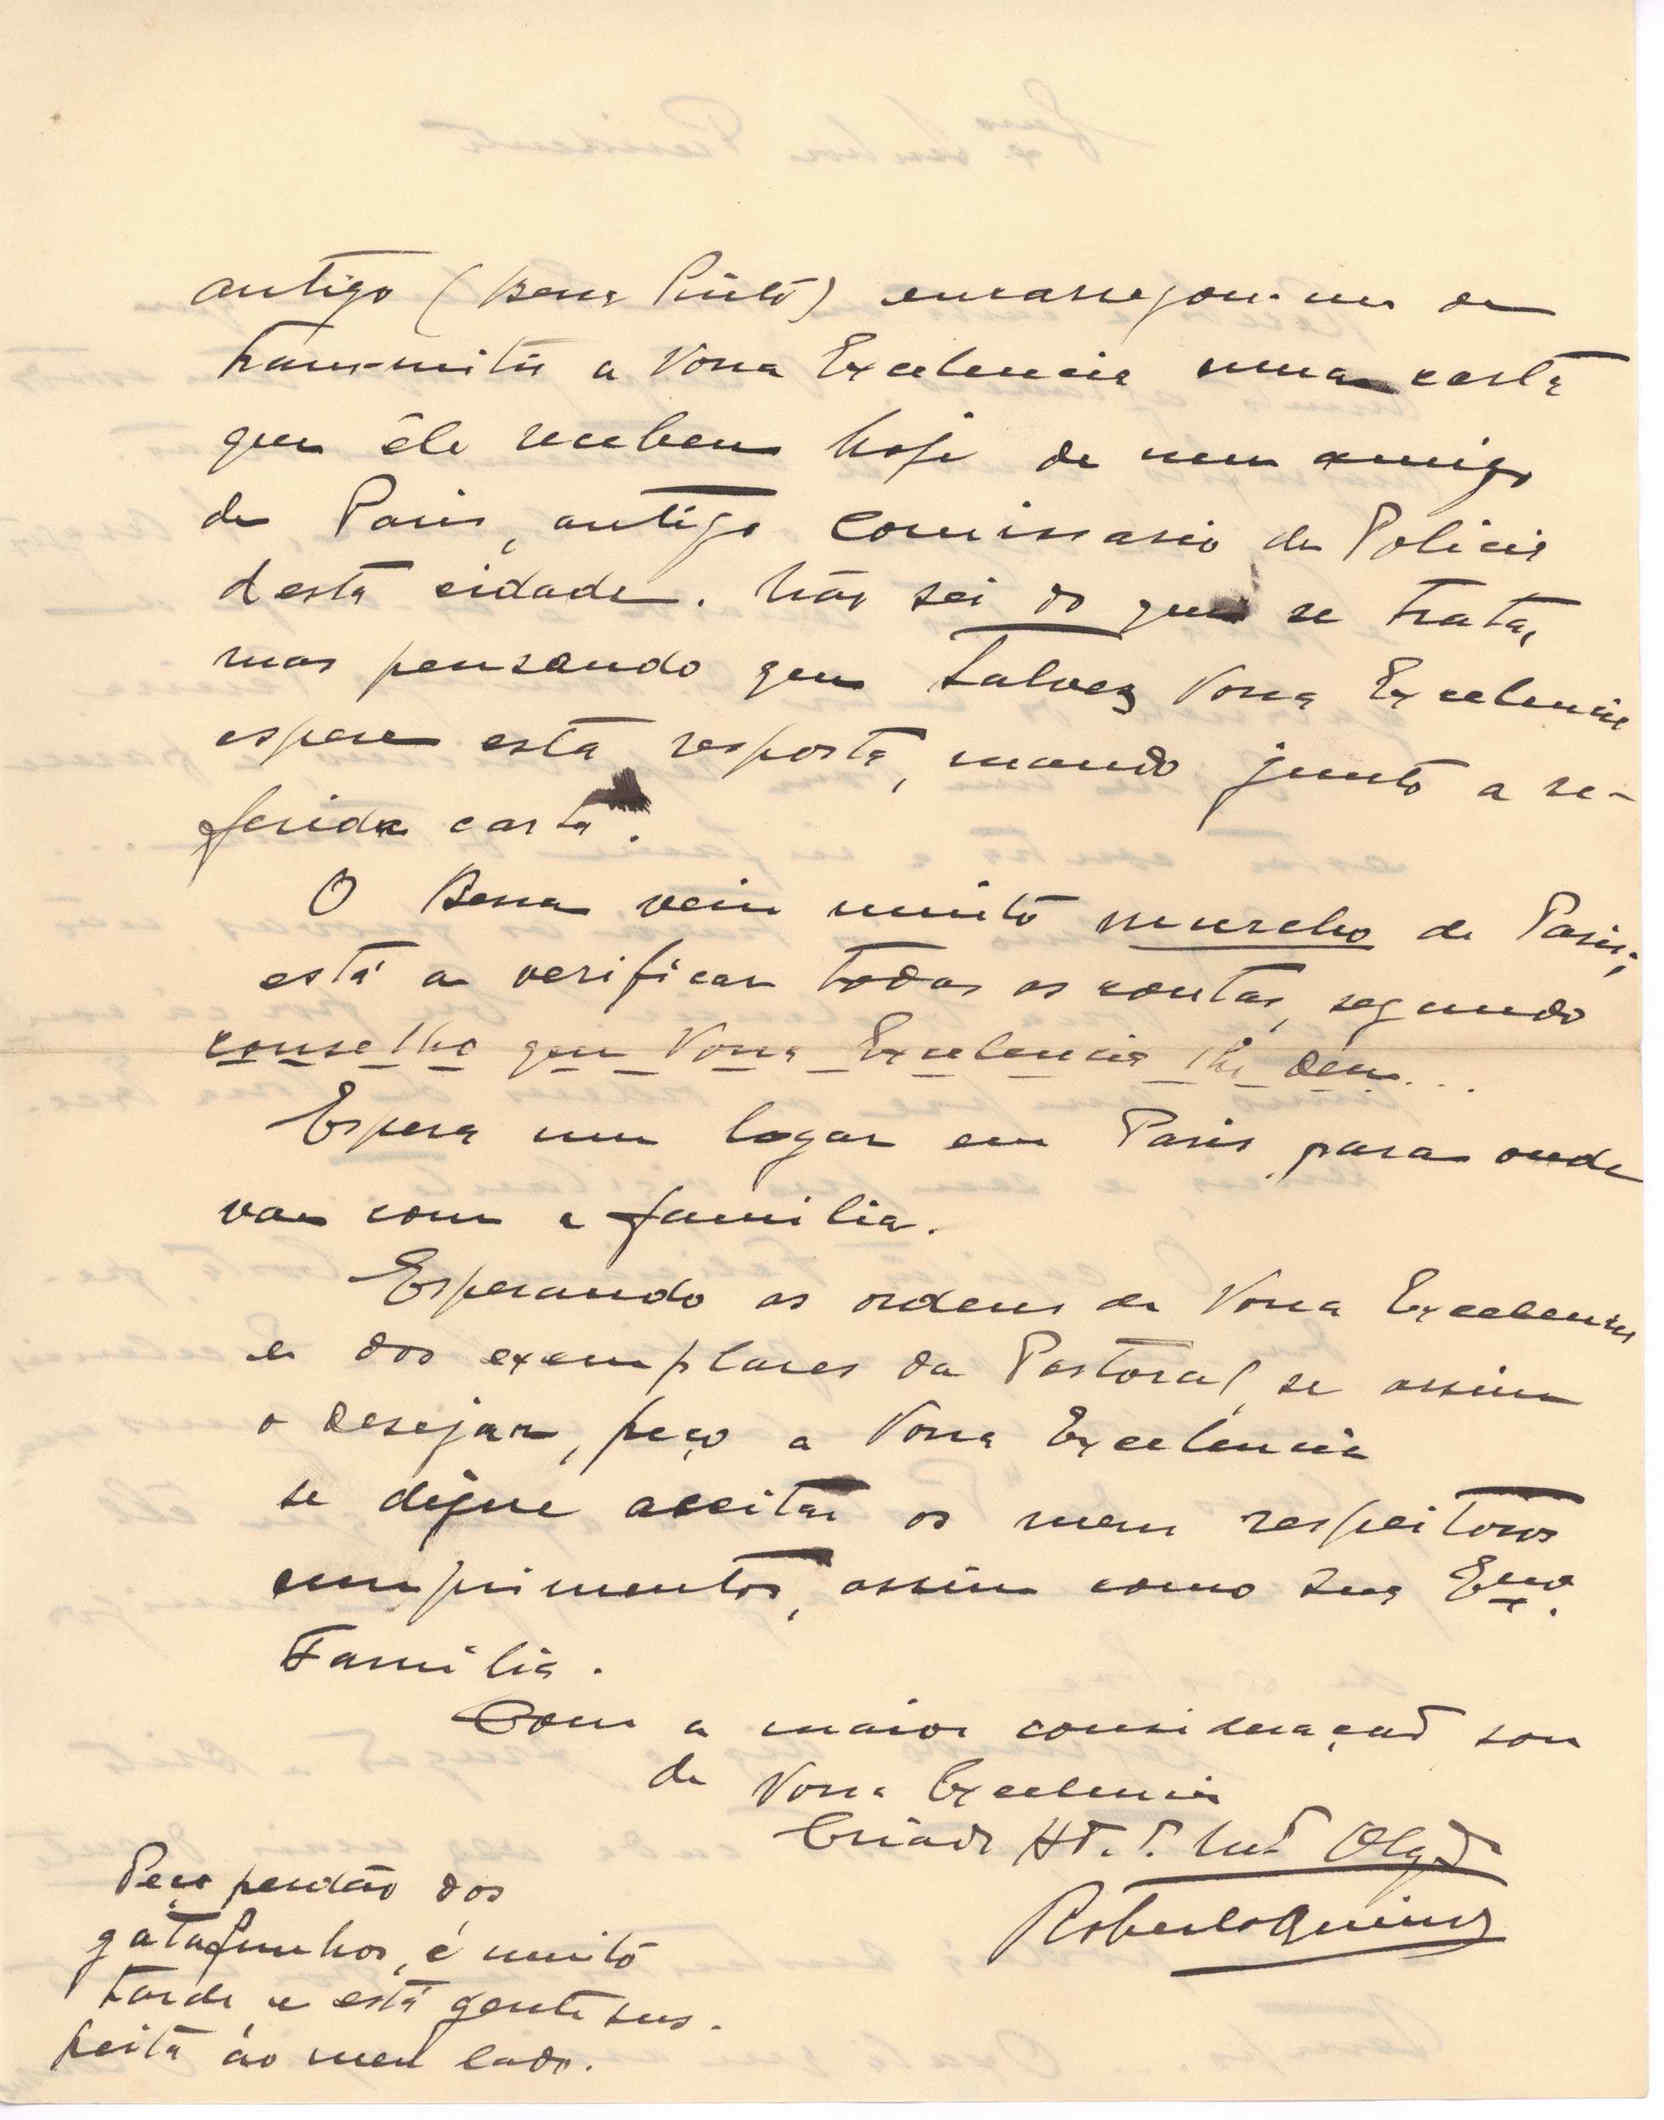 antigo (Bessa Pinto) encarregou-me de
transmitir a Vossa Excelencia uma carta
que êle recebeu hoje de um amigo
de Paris, antigo Comissario de Policia
desta cidade. Não sei do que se trata,
mas pensando que talvez Vossa Excelencia
espere esta resposta, mando junto a re-
ferida carta.
O Bessa vem muito murcho de Paris;
está a verificar todas as contas, segundo
conselho que Vossa Excelencia lhe deu...
Espera um logar em Paris para onde
vae com a familia.
Esperando as ordens de Vossa Excelencia
e dos exemplares da Pastoral, se assim
o desejar, peço a Vossa Excelencia
se digne aceitar os meus respeitosos
cumprimentos, assim como Sua Exma.
Familia.
Com a maior consideração sou
de Vossa Excelencia
Criado Att. V. Mto Obgdo
Roberto Queiroz
Peço perdão dos
gatafunhos, é muito
tarde e está gente sus-
peita ao meu lado.